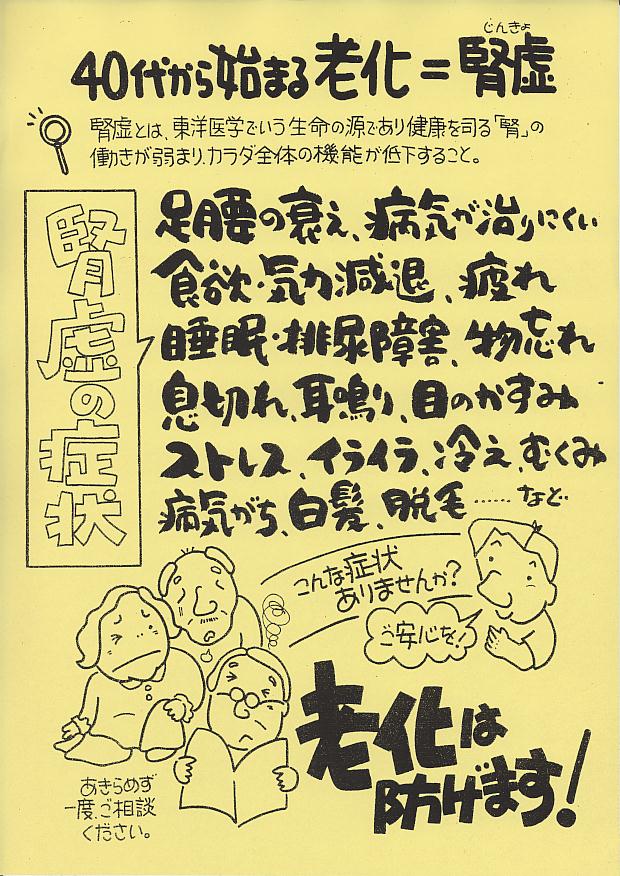 じんきょ
40代から始まる老化=腎虚
腎虚とは、東洋医学でいう生命の源であり健康を司る「腎」の
働きが弱まり、カラダ全体の機能が低下すること。
腎虚の症状
足腰の衰え、病気が治りにくい
食欲・気力減退、疲れ
睡眠・排尿障害、物忘れ
息切れ、耳鳴り、目のかすみ
ストレス、イライラ、冷え、むくみ
病気がち、白髪、脱毛……など
こんな症状
ありませんか?
ご安心を!
老化は
防げます!
あきらめず
一度、ご相談
ください。